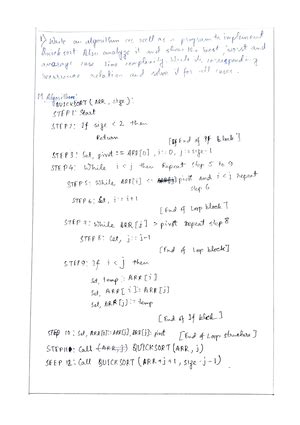 1) Write an algorithm as well as a program to implement
Quicksort. Also analyze it and show the best, worst and
average case time complexity. Write its corresponding
recurrence relation and solve it for all cases.
Algorithm:
QUICKSORT (ARR, size):
STEP 1: Start
STEP 2: If size < 2 then
Return
[End of If block]
STEP 3: Set, pivot := ARR[0], i:=0, j:=size-1
STEP 4: While i < j then Repeat step 5 to 9
STEP 5: While ARR[i] <= pivot and i < j repeat
step 6
STEP 6: Set, i:=i+1
[End of Loop block]
STEP 7: While ARR[j] > pivot Repeat step 8
STEP 8: Set, j:=j-1
[End of Loop block]
STEP 9: If i < j then
Set, temp := ARR[i]
Set, ARR[i] := ARR[j]
Set, ARR[j] := temp
[End of If block]
[End of Loop structure]
STEP 10: Set, ARR[0]:=ARR[j], ARR[j]:= pivot
STEP 11: Call QUICKSORT (ARR, j)
STEP 12: Call QUICKSORT (ARR+j+1, size-j-1)